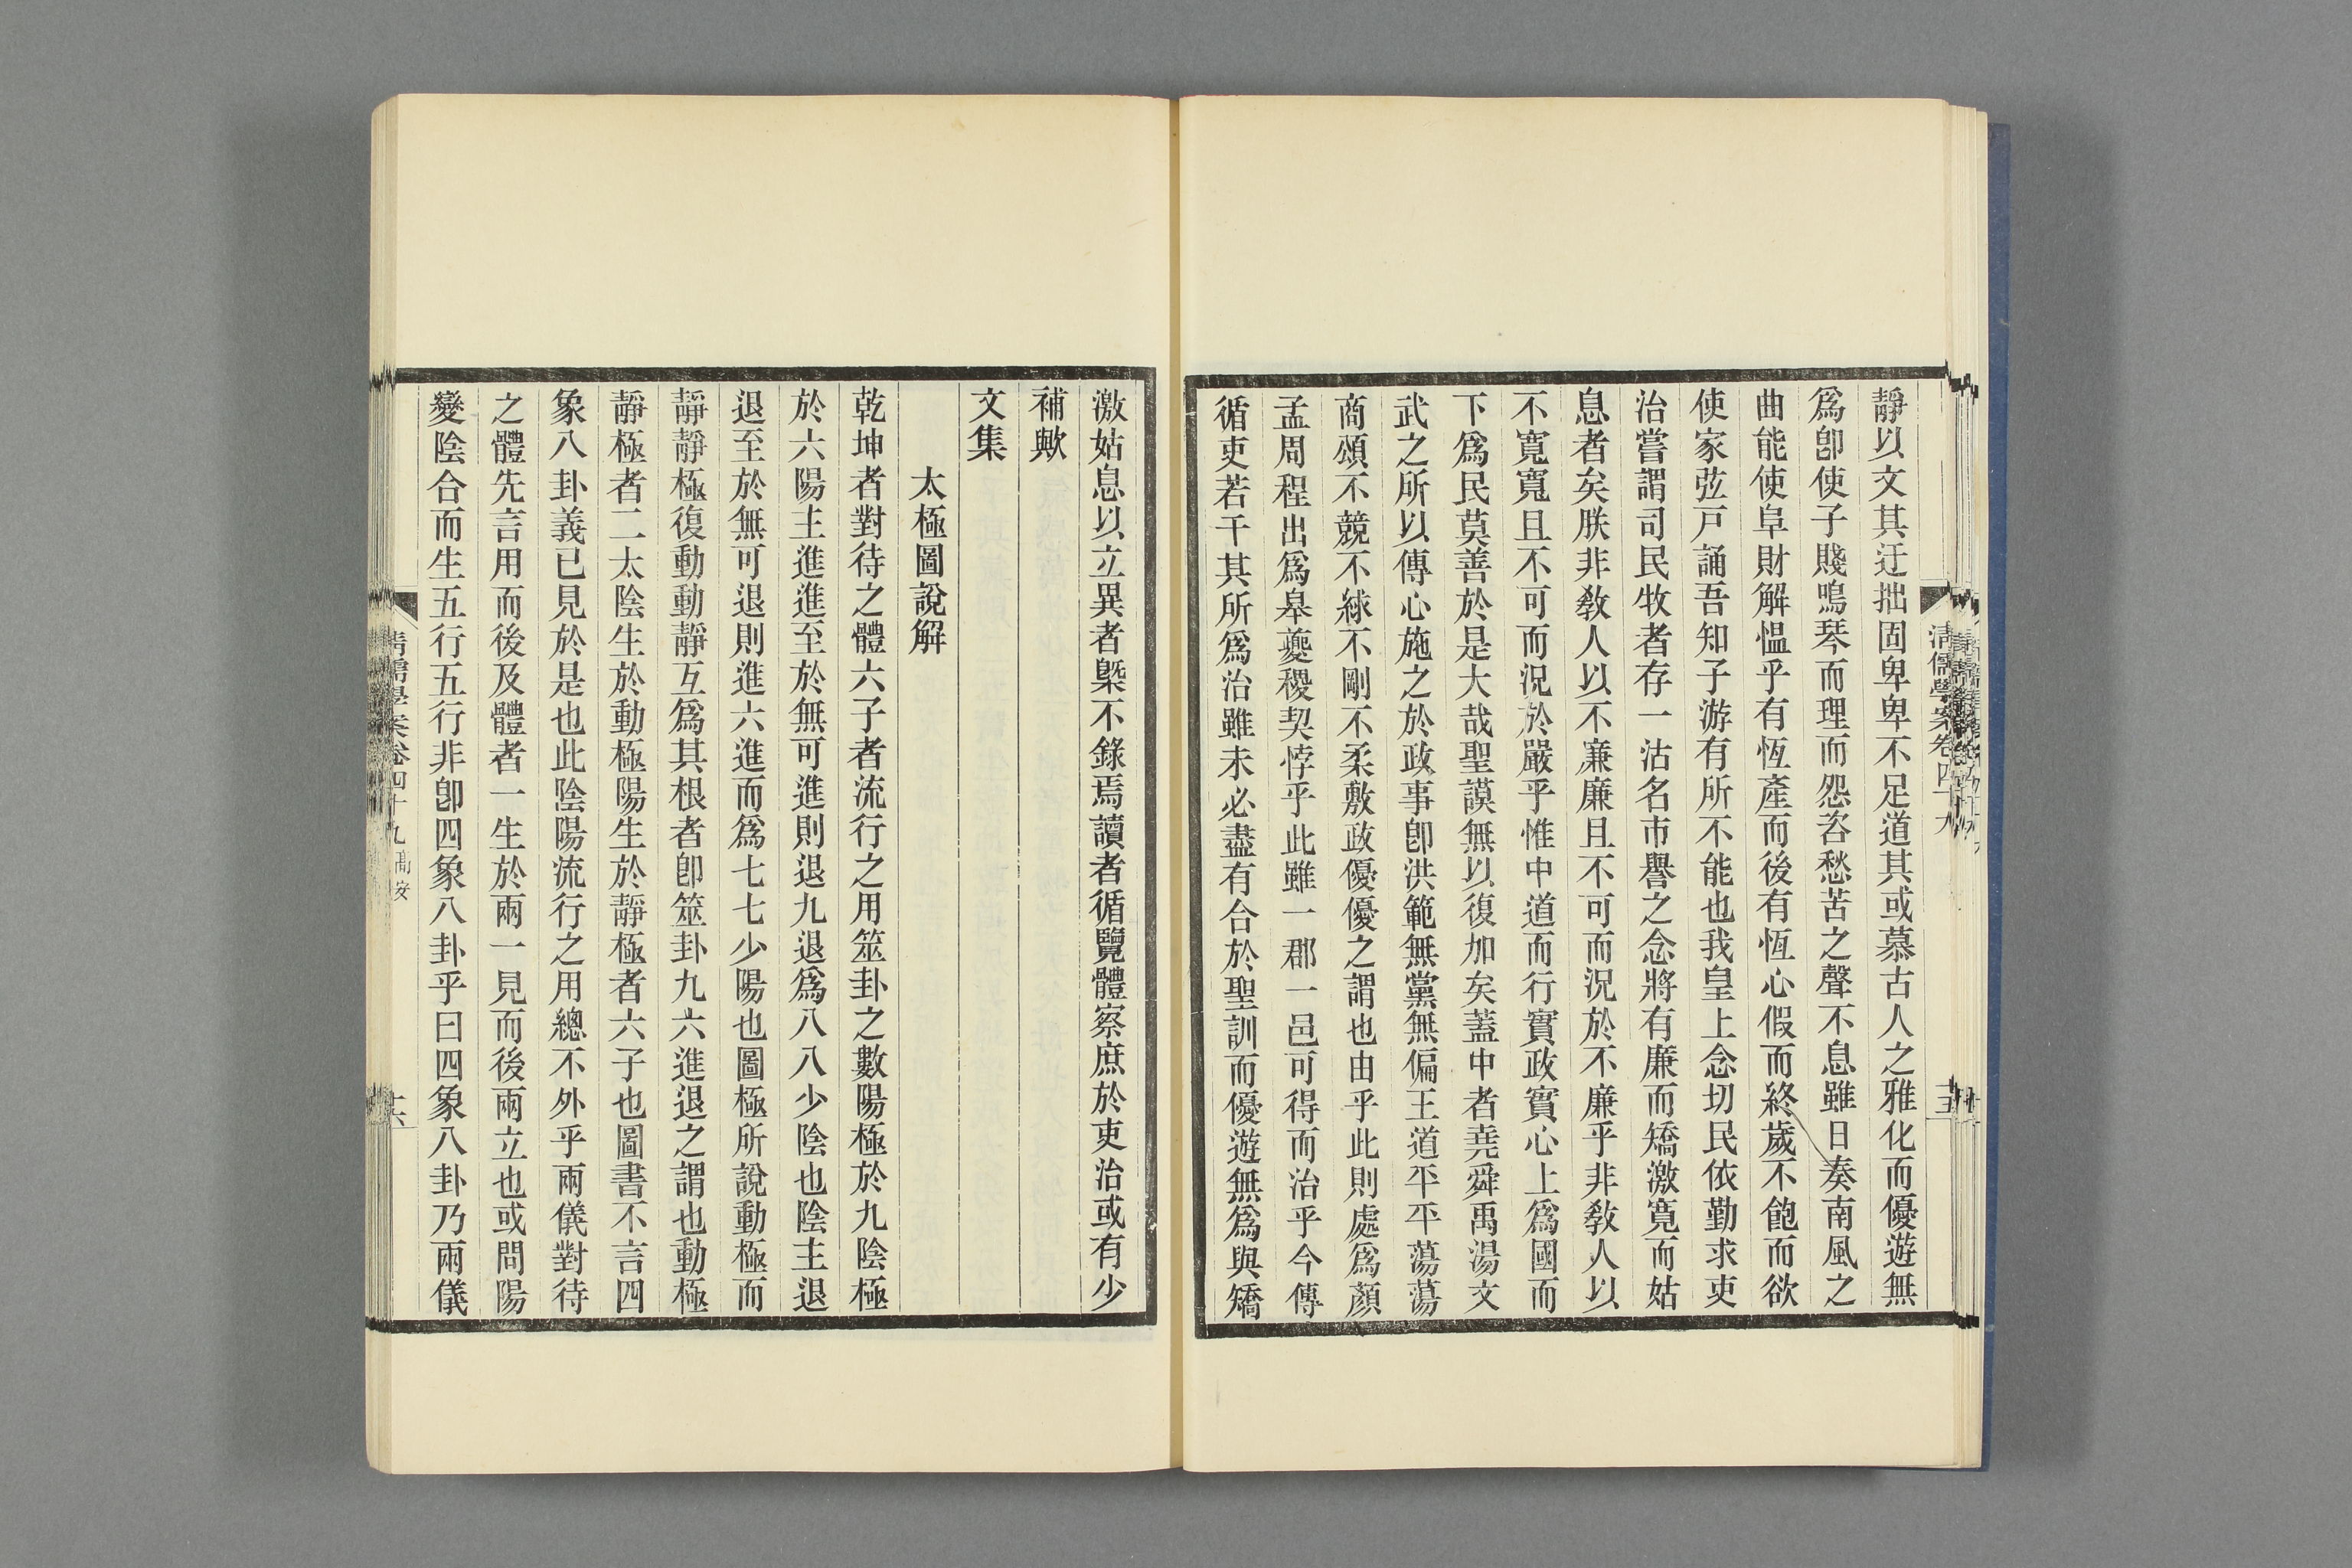 靜以文其迂拙固卑卑不足道其或慕古人之雅化而優遊無
爲卽使子賤鳴琴而理而怨咨愁苦之聲不息雖日奏南風之
曲能使阜財解愠乎有恆產而後有恆心假而終歲不飽而欲
使家弦戸誦吾知子游有所不能也我皇上念切民依勤求吏
治嘗謂司民牧者存一沽名市譽之念將有廉而矯激寬而姑
息者矣朕非敎人以不廉廉且不可而況於不廉乎非敎人以
不寬寬且不可而況於嚴乎惟中道而行實政實心上爲國而
下爲民莫善於是大哉聖謨無以復加矣蓋中者堯舜禹湯文
武之所以傳心施之於政事卽洪範無黨無偏王道平平蕩蕩
商頌不競不絿不剛不柔敷政優優之謂也由乎此則處爲顏
孟周程出爲皋夔稷契悖乎此雖一郡一邑可得而治乎今傳
循吏若干其所爲治雖未必盡有合於聖訓而優遊無爲與矯
激姑息以立異者槩不錄焉讀者循覽體察庶於吏治或有少
補歟
文集
太極圖說解
乾坤者對待之體六子者流行之用筮卦之數陽極於九陰極
於六陽主進進至於無可進則退九退爲八八少陰也陰主退
退至於無可退則進六進而爲七七少陽也圖極所說動極而
靜靜極復動動靜互爲其根者卽筮卦九六進退之謂也動極
靜極者二太陰生於動極陽生於靜極者六子也圖書不言四
象八卦義已見於是也此陰陽流行之用總不外乎兩儀對待
之體先言用而後及體者一生於兩一見而後兩立也或問陽
變陰合而生五行五行非卽四象八卦乎曰四象八卦乃兩儀
清儒學案卷四十九
十五
清儒學案卷四十九 高安
十六